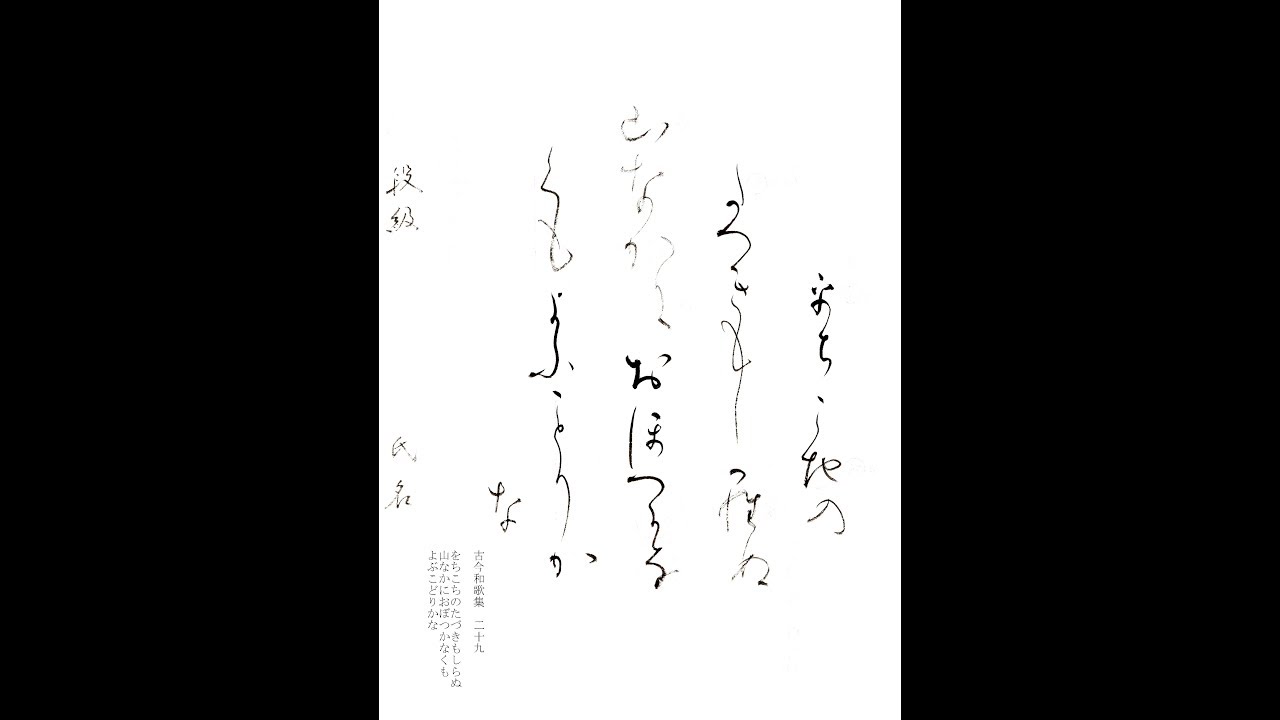 をちこちの
たつきもしらぬ
山なかにおほつかな
くもよふことりか
な
古今和歌集 二十九
をちこちのたづきもしらぬ
山なかにおぼつかなくも
よぶこどりかな
段級 氏名